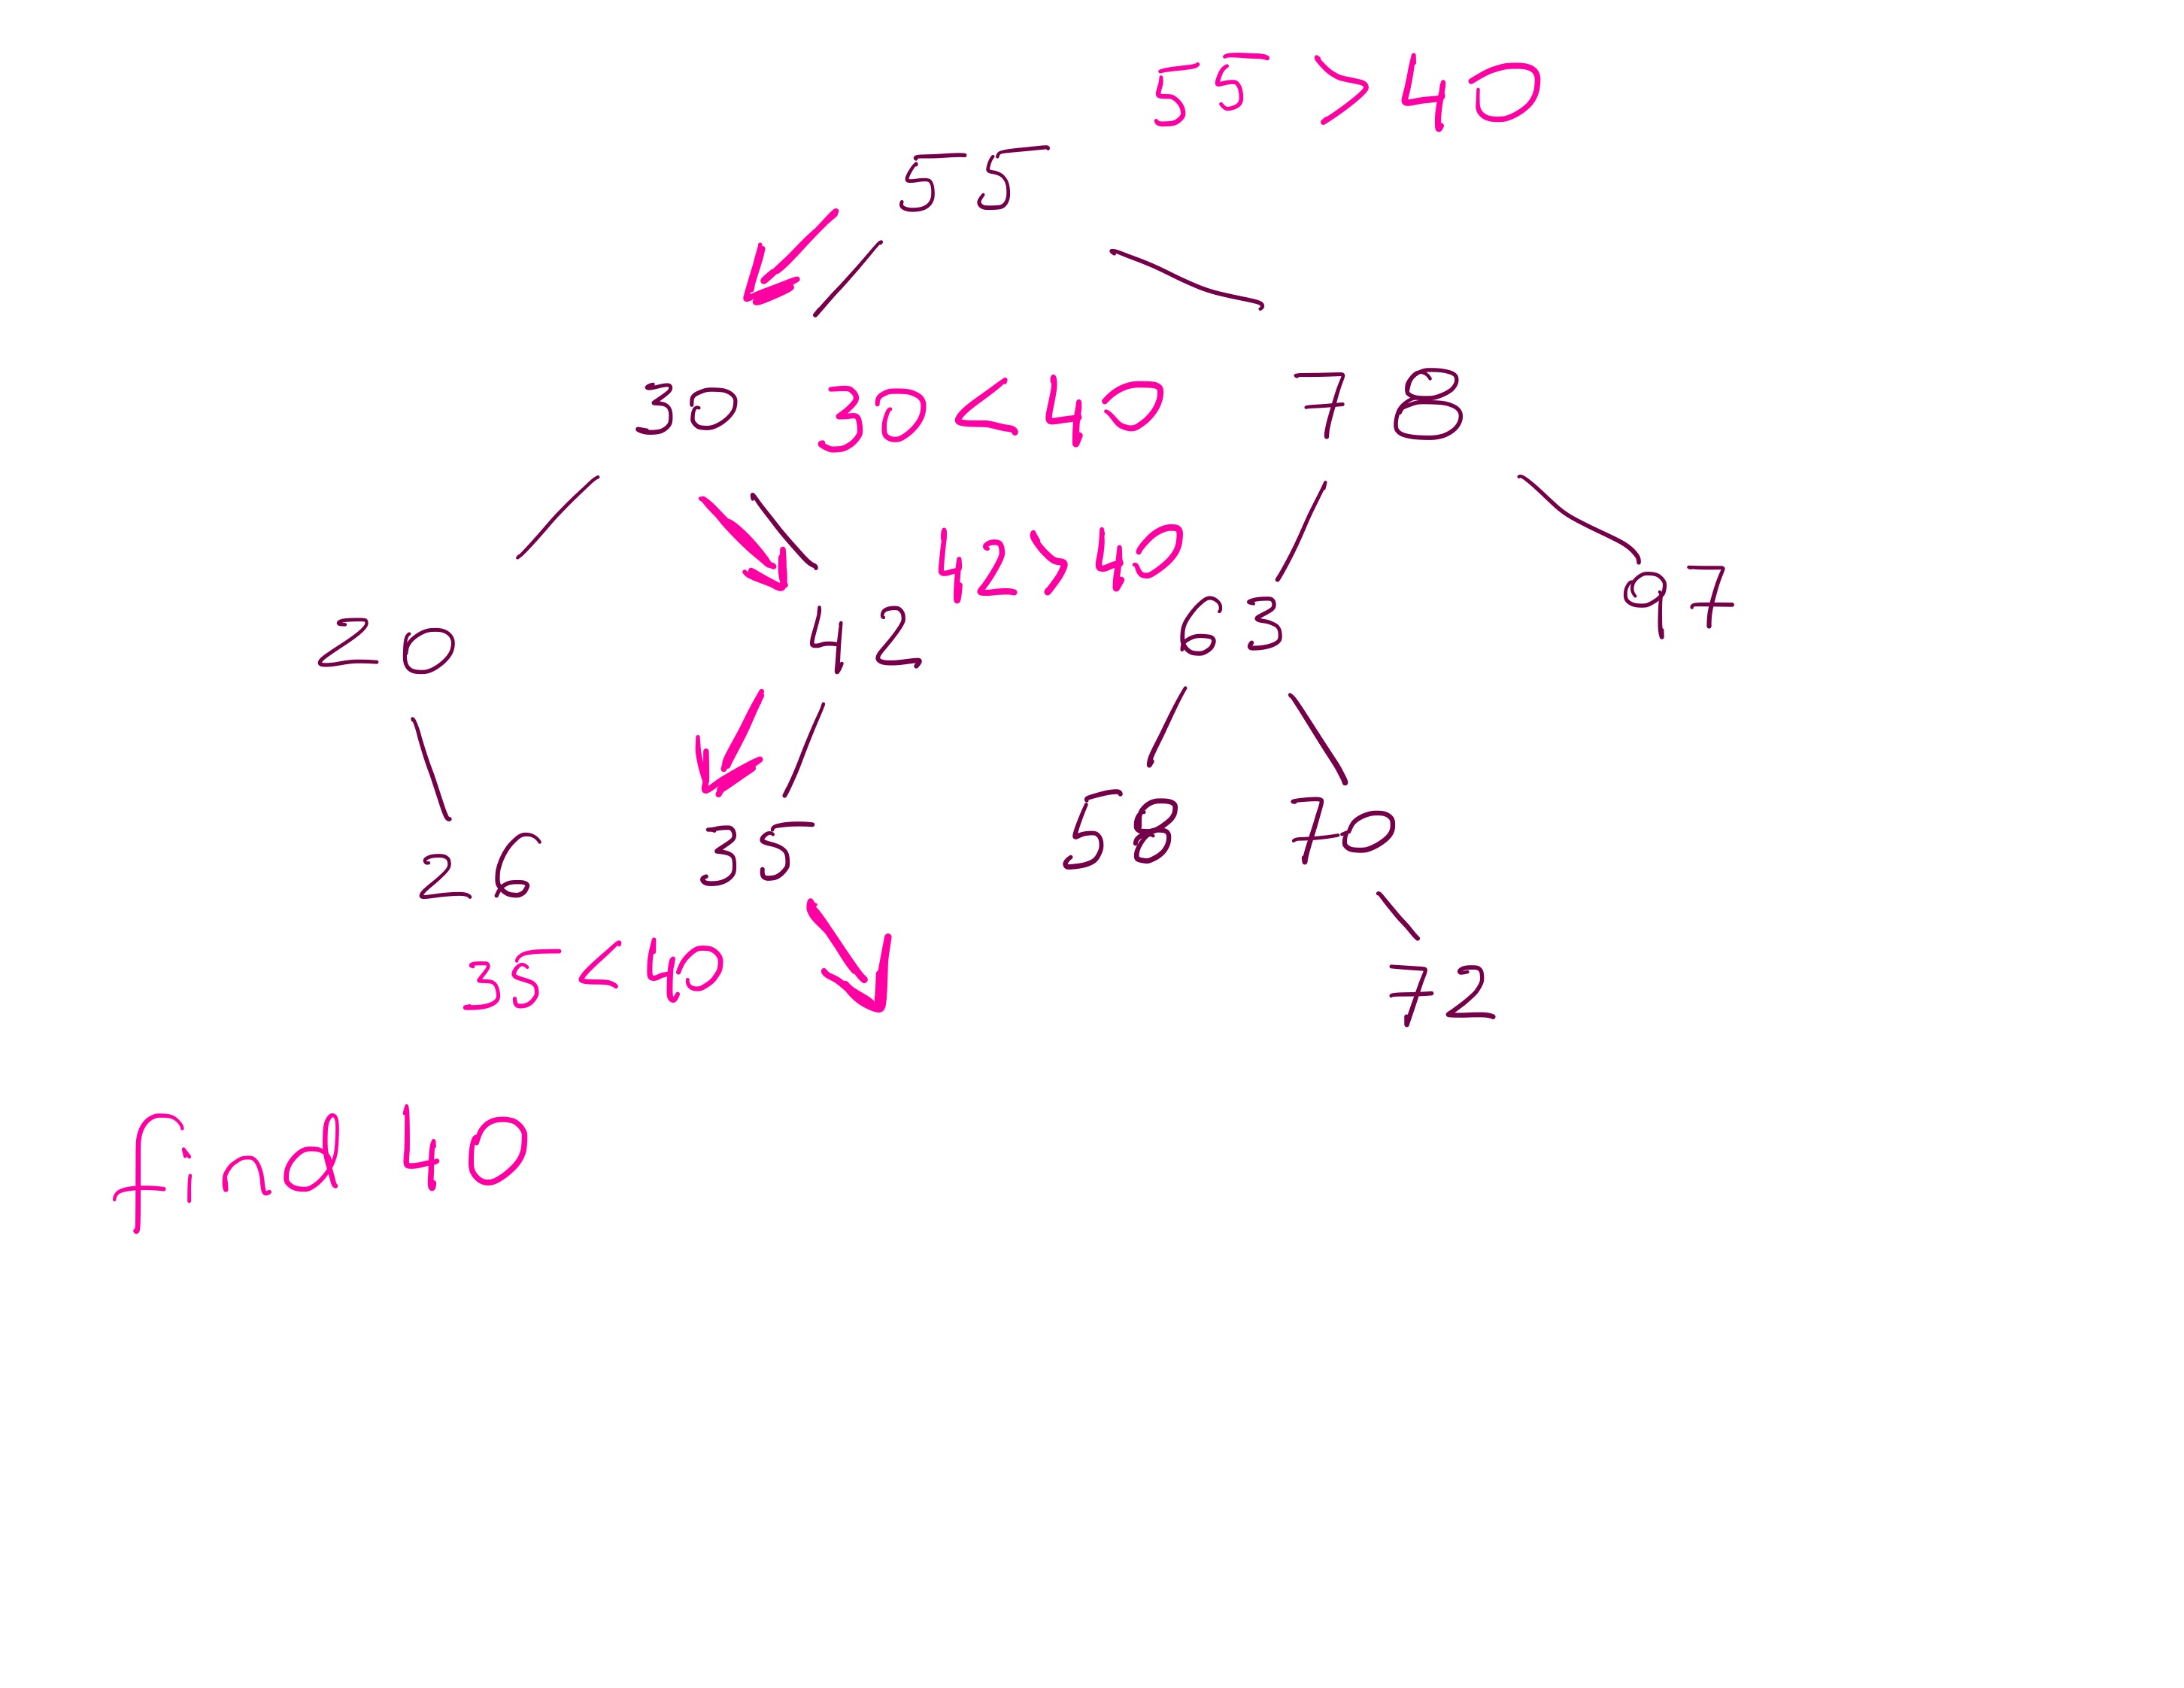 55 > 40
55
30 30 < 40 78
42 > 40
20 42 63 97
26 35 58 70
35 < 40 72
find 40